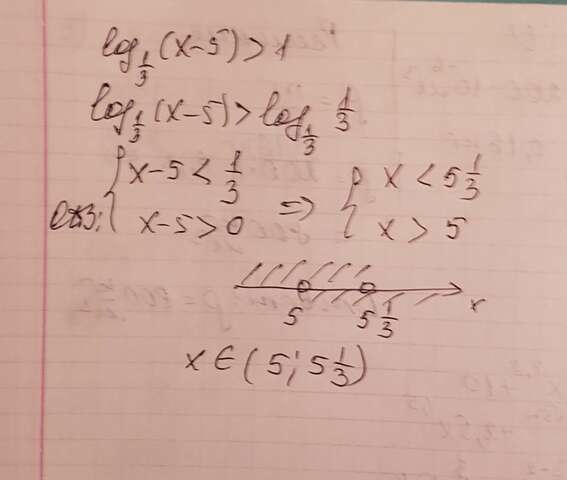 log_{1/3}(x-5)>1
log_{1/3}(x-5)>log_{1/3} 1/3
{ x-5 < 1/3 ⇒ { x < 5 1/3
x-5>0 x > 5
5 5 1/3 x
x∈(5; 5 1/3)